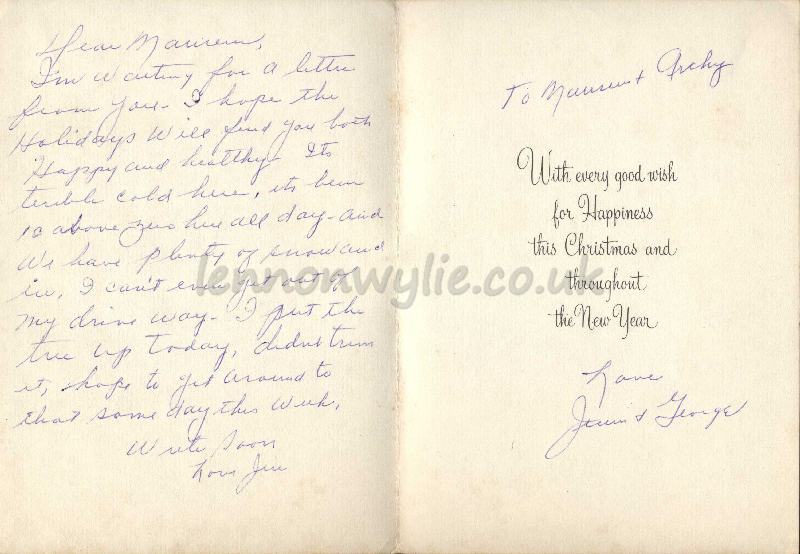 Dear Maureen,
I'm waiting for a letter
from you - I hope the
Holidays will find you both
Happy and healthy - Its
terrible cold here, its been
10 above zero here all day - and
We have plenty of snow and
ice, I can't even get out of
my drive way - I put the
tree up today, didn't trim
it, hope to get around to
that some day this week.
Write Soon
Love
To Maureen & Archy
With every good wish
for Happiness
this Christmas and
throughout
the New Year
Love
& George
lennonwylie.co.uk